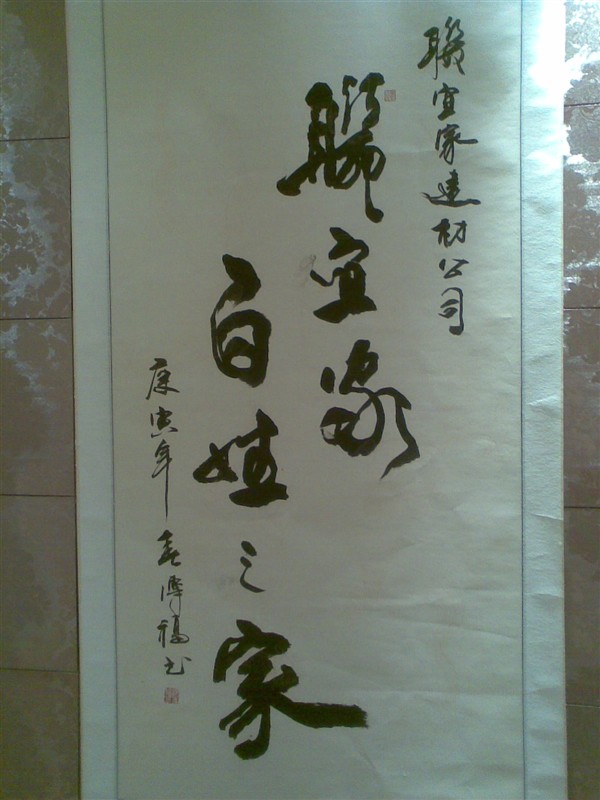 聯宜家建材公司
聯宜家
百姓之家
庚寅年春福书